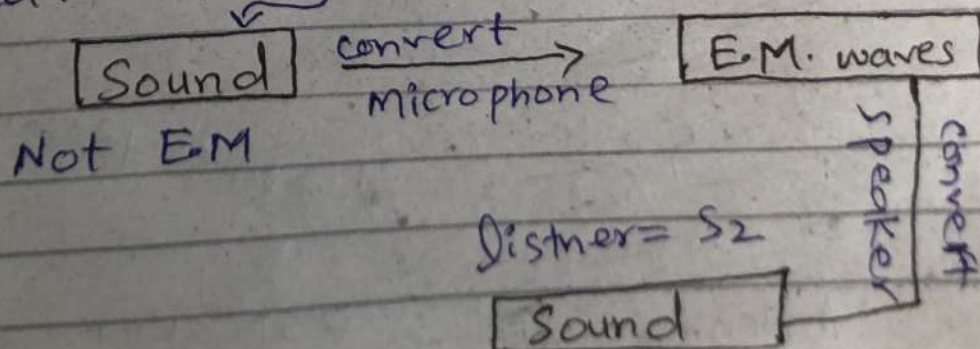 Sound
convert
microphone
E.M. waves
Not E.M
speaker
convert
= S2
Sound